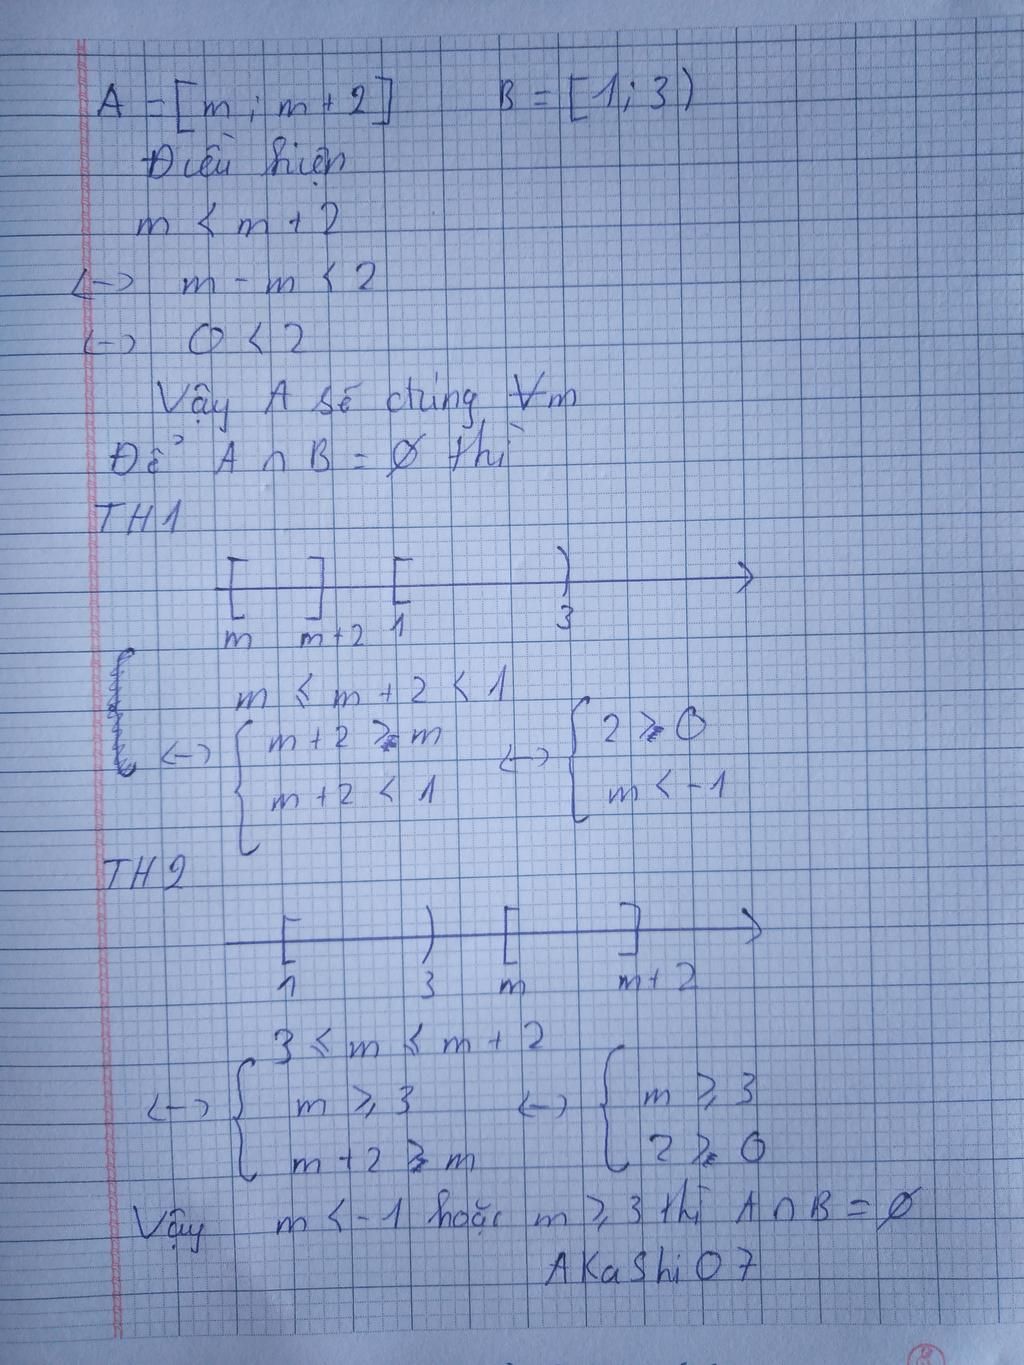 A = [m ; m + 2]   B = [1 ; 3)
Điều kiện
m < m + 2
<-> m - m < 2
<-> 0 < 2
Vậy A sẽ đúng ∀m
Để A ∩ B = ∅ thì
TH1
m   m+2   1   3
m ≤ m + 2 < 1
<-> { m + 2 ≥ m   <-> { 2 ≥ 0
m + 2 < 1   m < -1
TH2
1   3   m   m+2
3 ≤ m ≤ m + 2
<-> { m ≥ 3   <-> { m ≥ 3
m + 2 ≥ m   2 ≥ 0
Vậy m < -1 hoặc m ≥ 3 thì A ∩ B = ∅
AKaShi07